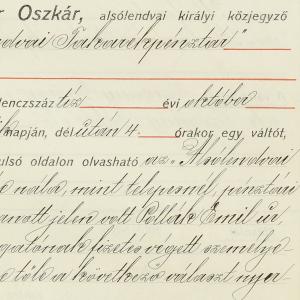 r Oszkár, alsólendvai királyi közjegyző
ndvai Takarékpénztár"
lenczszáz tíz évi október
napján, dél után 4. órakor egy váltót,
ulsó oldalon olvasható az „Alsólendvai
nála, mint telepesnél, pénztári
anott jelen volt Pollák Emil úr,
gatónak fizetés végett személye
tőle a következő választ nyer